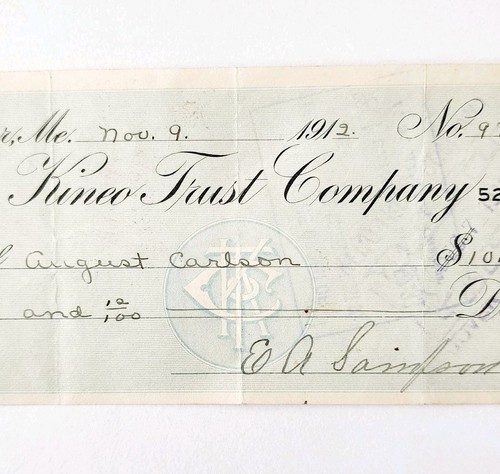 r, Me. Nov. 9. 1912. No. 9
Kineo Trust Company 52
August Carlson $10
and 10/100 D
E A Sampson